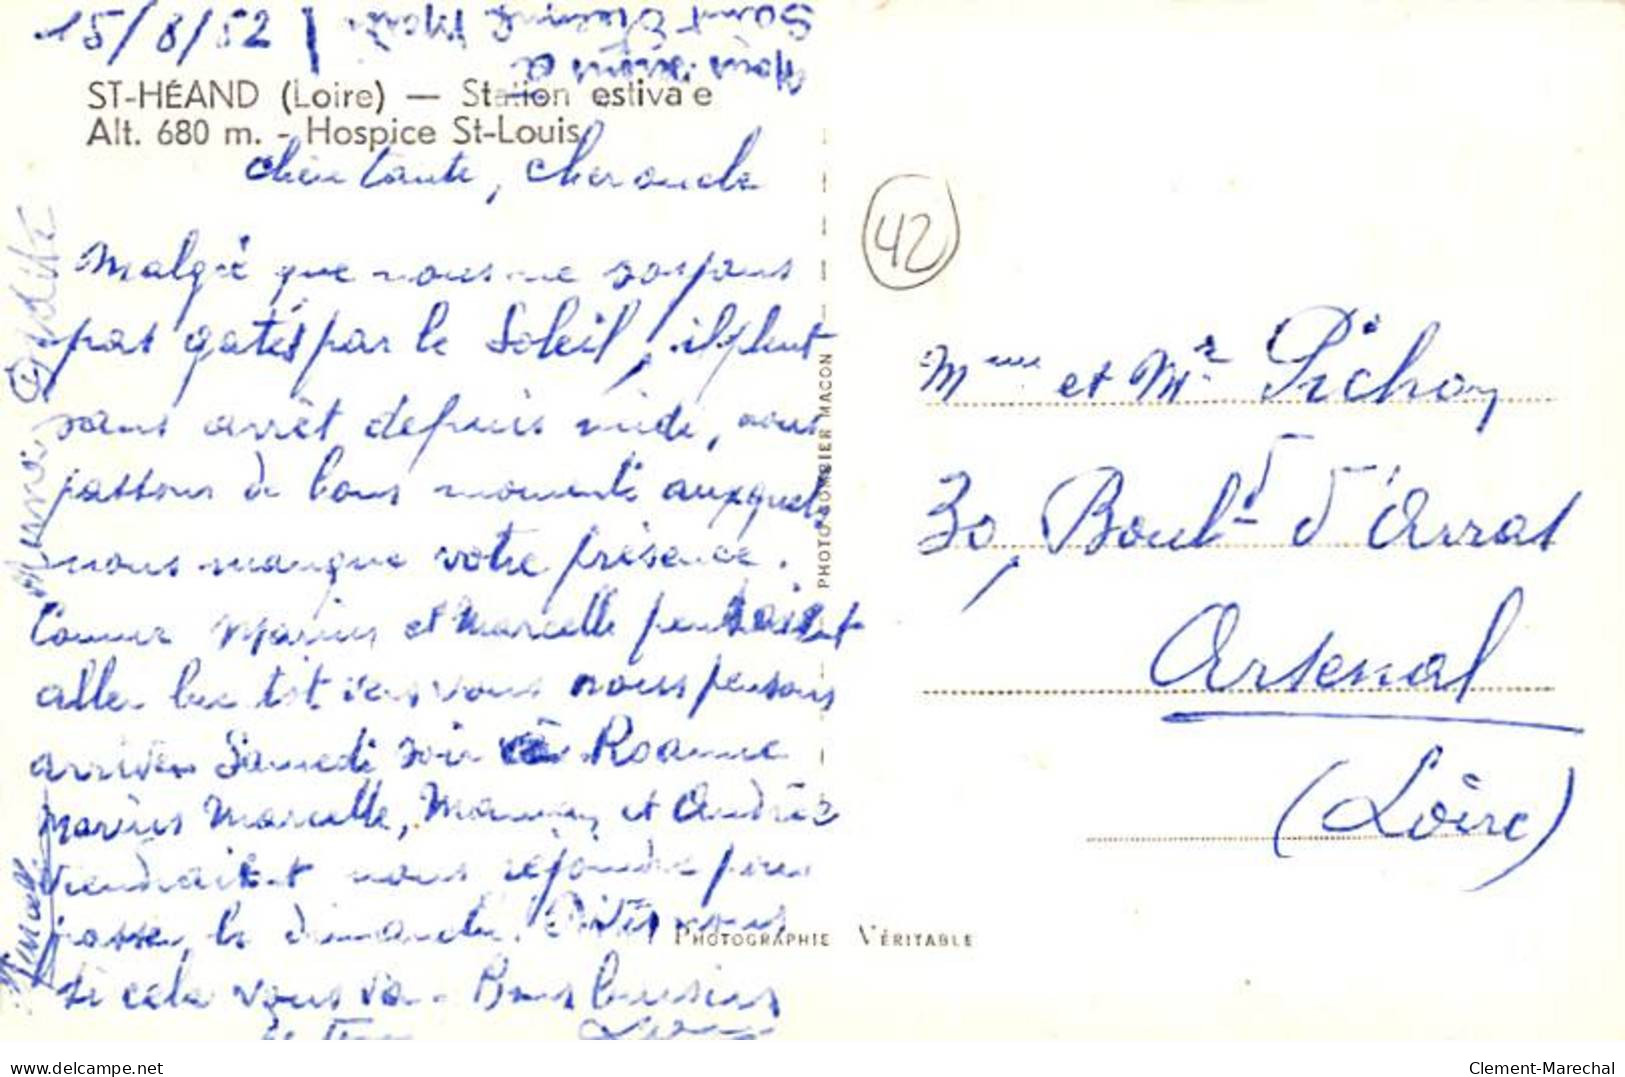 15/8/52
ST-HÉAND (Loire) — Station estivale
Alt. 680 m. - Hospice St-Louis
Chère tante, cher oncle
Malgré que nous ne soyons
pas gatés par le Soleil, il pleut
sans arrêt depuis midi, nous
passons de bons moments auxquels
nous manque votre présence.
Comme Marius et Marcelle pensaient
aller bientôt vers vous nous pensons
arriver Samedi soir Roanne
Marius Marcelle, Maman et Andrée
viendraient nous rejoindre pour
passer le dimanche. Dites nous
si cela vous va. Bons baisers
à tous
Saint Etienne Mardi
Nous irons à
42
PHOTO COMBIER MACON
Mme et Mr Pichon
30, Boul.d d'Arras
Arsenal
(Loire)
PHOTOGRAPHIE VÉRITABLE
https://www.delcampe.net
Clement-Marechal